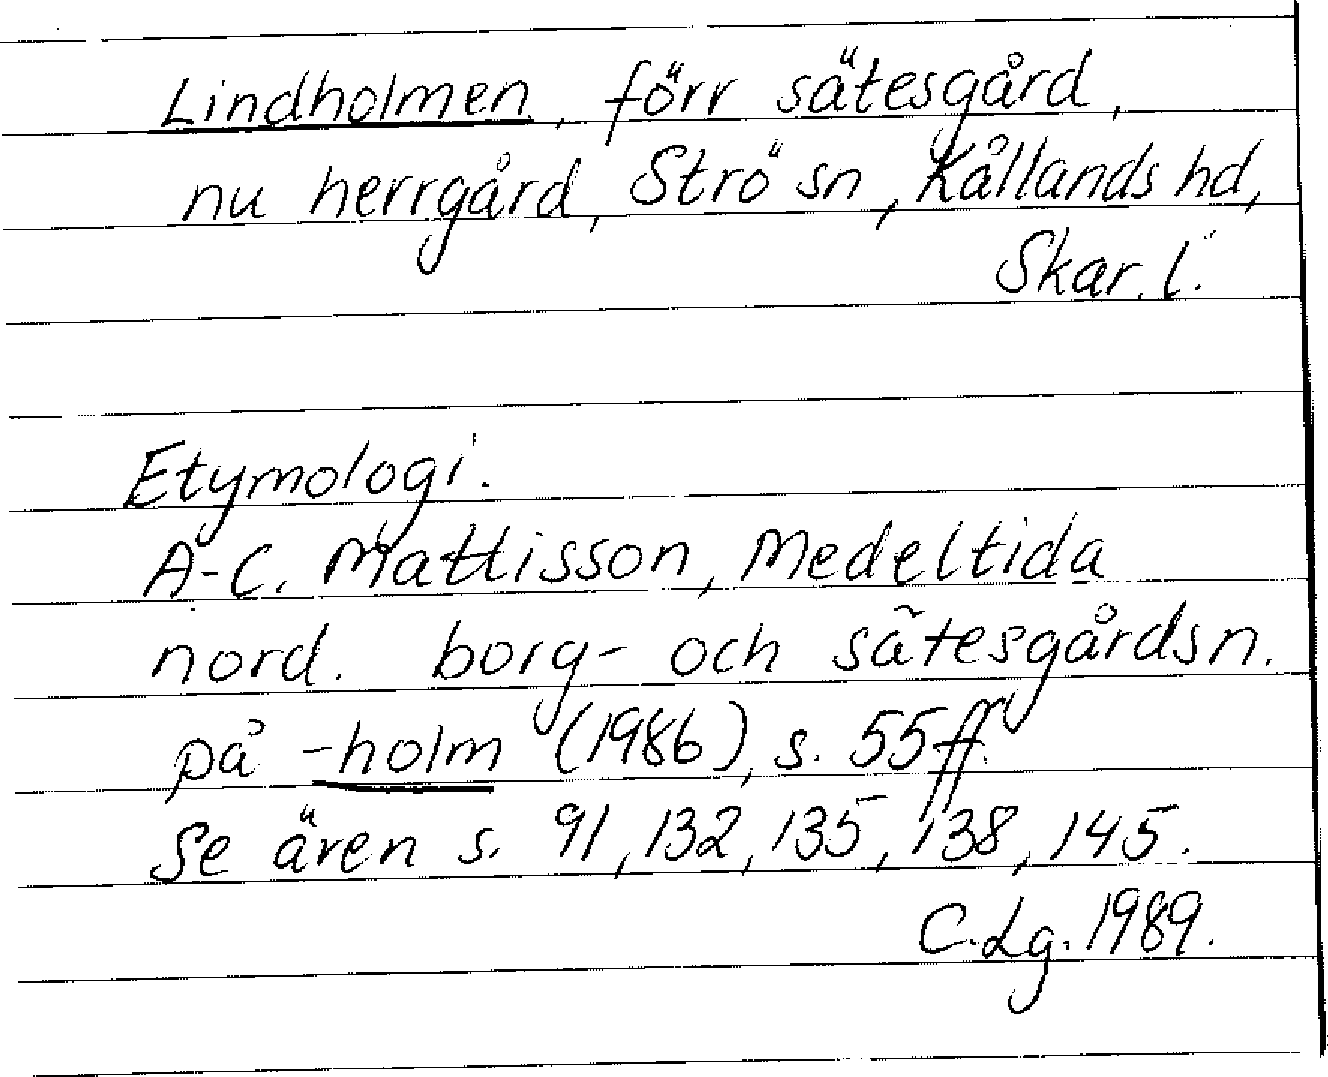 Lindholmen, förr sätesgård,
nu herrgård, Strö sn, Kållands hd,
Skar. l.
Etymologi.
A-C. Mattisson, Medeltida
nord. borg- och sätesgårdsn.
på -holm (1986), s. 55ff.
Se även s. 91, 132, 135, 138, 145.
C. Lg. 1989.